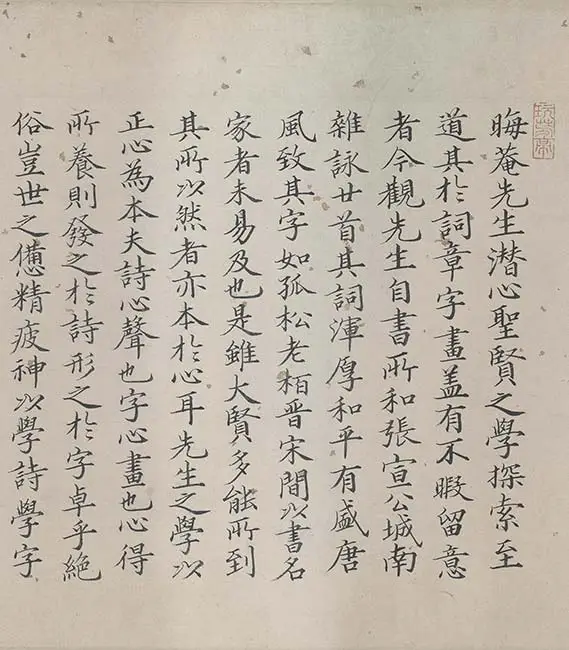 晦菴先生潛心聖賢之學探索至
道其於詞章字畫盖有不暇留意
者今觀先生自書所和張宣公城南
雜詠廿首其詞渾厚和平有盛唐
風致其字如孤松老栢晋宋間以書名
家者未易及也是雖大賢多能所到
其所以然者亦本於心耳先生之學以
正心為本夫詩心聲也字心畫也心得
所養則發之於詩形之於字卓乎絶
俗豈世之憊精疲神以學詩學字